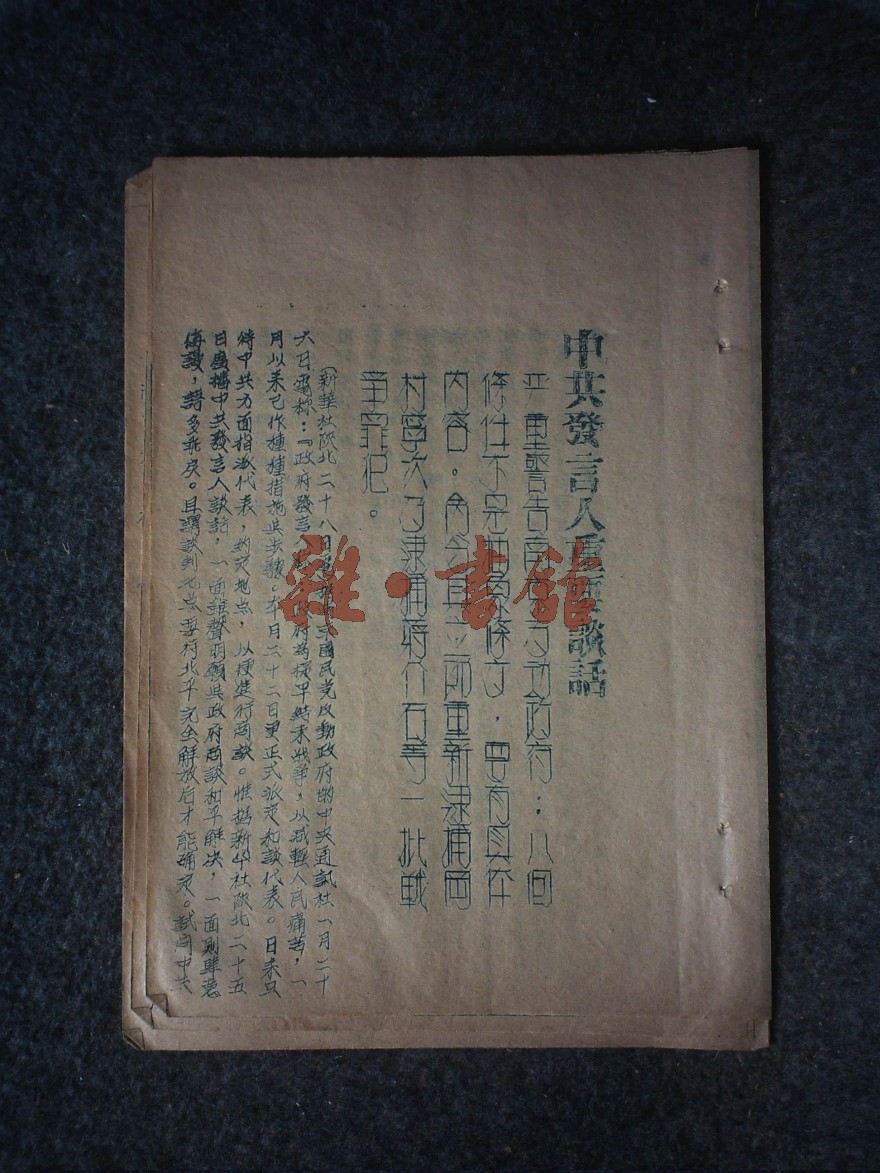 中共發言人重要談話
严重警告南京反动政府：八個
條件不是抽象條文，要有具体
内容。命令其立卽重新逮捕岡
村寧次及逮捕蔣介石等一批戰
爭罪犯。
（新華社陝北二十八日電）國民党反動政府的中央通訊社一月二十
六日電称：『政府發言人政府爲提早結束战争，以减輕人民痛苦，一
月以来已作種種措施與步驟。本月二十二日更正式派定和談代表。日来只
待中共方面指派代表，約定地点，以便進行商談。惟據新华社陝北二十五
日廣播中共發言人談話，一面雖聲明願與政府商談和平解决，一面則肆意
侮謾，語多乖戾。且謂談判地点要待北平完全解放后才能确定。試问中共
雜·書館